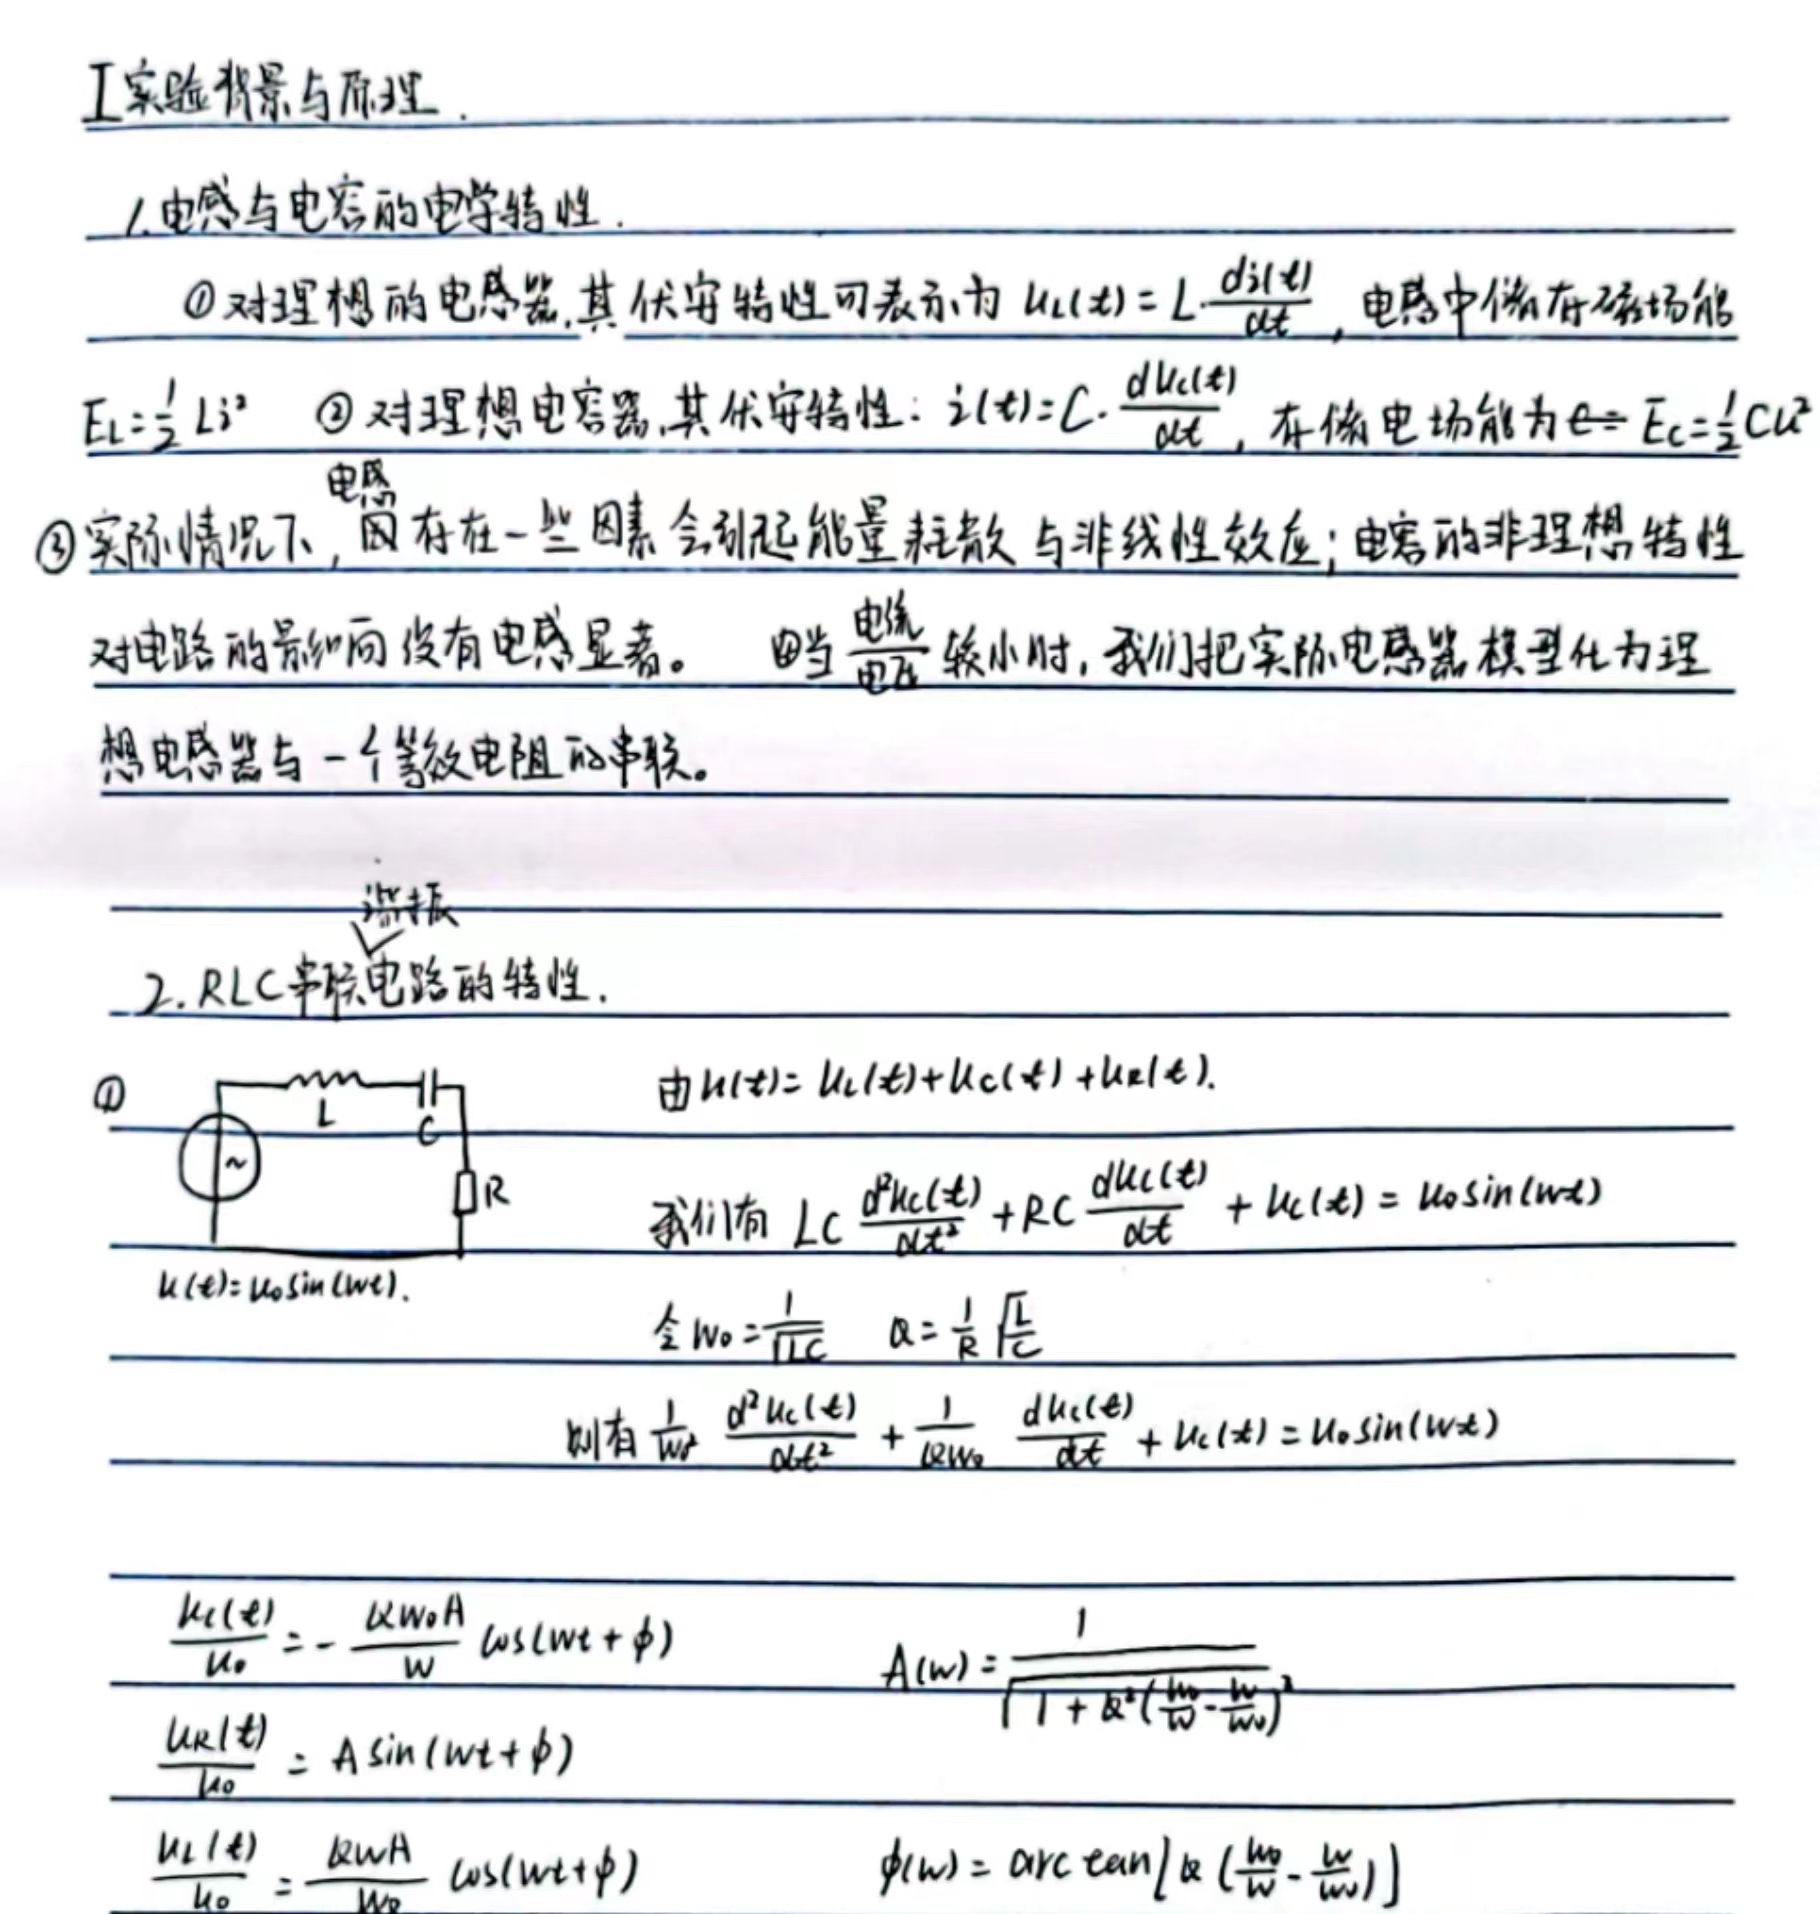 I 实验背景与原理.
1.电感与电容的电学特性.
①对理想的电感器,其伏安特性可表示为 u_L(t)=L·\frac{di(t)}{dt},电感中储存磁场能
E_L=\frac{1}{2}Li² ②对理想电容器,其伏安特性: i(t)=C·\frac{du_c(t)}{dt},存储电场能为 E_C=\frac{1}{2}Cu²
电感
③实际情况下,因存在一些因素会引起能量耗散与非线性效应;电容的非理想特性
对电路的影响向没有电感显著。 当\frac{电流}{电压}较小时,我们把实际电感器模型化为理
想电感器与一个等效电阻的串联。
谐振
2.RLC串联电路的特性.
① L C R ~
由u(t)=u_L(t)+u_C(t)+u_R(t).
我们有 LC\frac{d²u_C(t)}{dt²}+RC\frac{du_C(t)}{dt}+u_C(t)=u_0sin(wt)
u(t)=u_0sin(wt).
令w_0=\frac{1}{\sqrt{LC}} Q=\frac{1}{R}\sqrt{\frac{L}{C}}
则有\frac{1}{w_0²}\frac{d²u_C(t)}{dt²}+\frac{1}{Qw_0}\frac{du_C(t)}{dt}+u_C(t)=u_0sin(wt)
\frac{u_C(t)}{u_0}=-\frac{Qw_0A}{w}cos(wt+ϕ) A(w)=\frac{1}{\sqrt{1+Q²(\frac{w_0}{w}-\frac{w}{w_0})²}}
\frac{u_R(t)}{u_0}=Asin(wt+ϕ)
\frac{u_L(t)}{u_0}=\frac{QwA}{w_0}cos(wt+ϕ) ϕ(w)=arctan[Q(\frac{w_0}{w}-\frac{w}{w_0})]